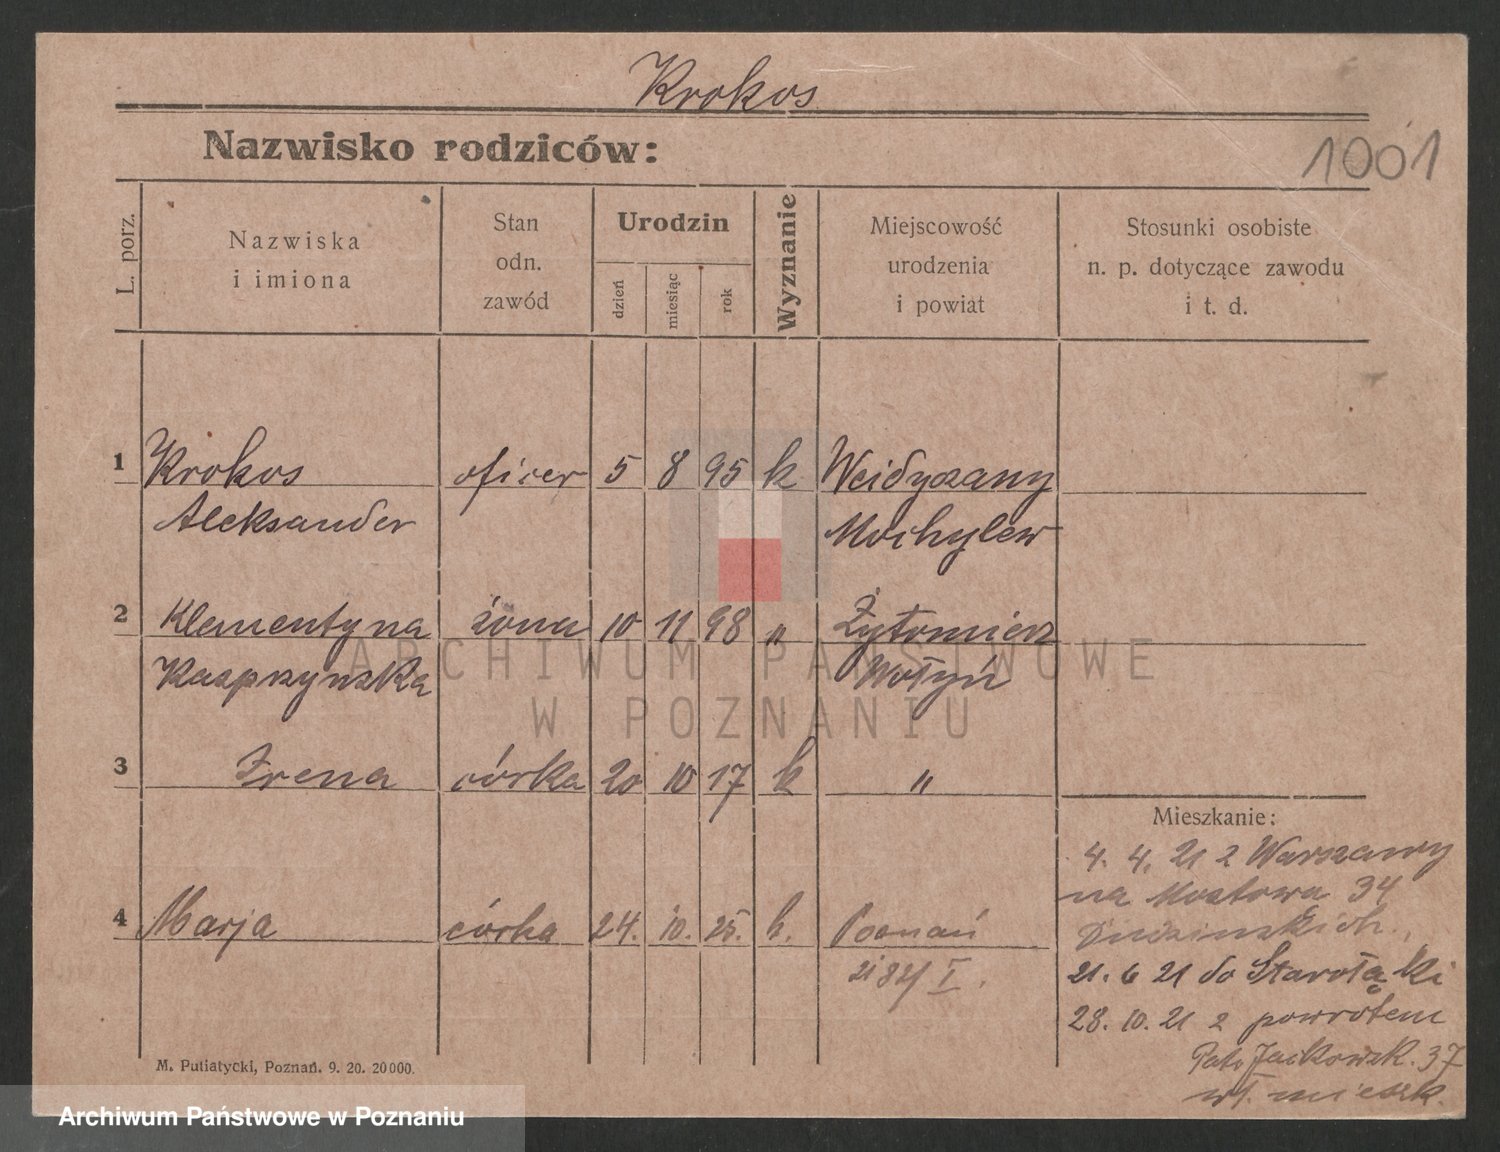 Krokos
Nazwisko rodziców:
1001
L. porz.
Nazwiska
i imiona
Stan
odn.
zawód
Urodzin
dzień
miesiąc
rok
Wyznanie
Miejscowość
urodzenia
i powiat
Stosunki osobiste
n. p. dotyczące zawodu
i t. d.
1 Krokos oficer 5 8 95 k Weidyszany
Aleksander Mochylew
2 Klementyna żona 10 11 98 " Żytomierz
Kasprzynska Wołyń
ARCHIWUM PAŃSTWOWE
W POZNANIU
3 Irena córka 20 10 17 k "
Mieszkanie:
4. 4. 21 z Warszawy
na Mostowa 34
4 Marja córka 24. 10. 25. k. Poznań
2182/ I.
21. 6 21 do Starołąki
28. 10. 21 z powrotem
Jackowsk. 37
wł. mieszk.
M. Putiatycki, Poznań. 9. 20. 20000.
Archiwum Państwowe w Poznaniu